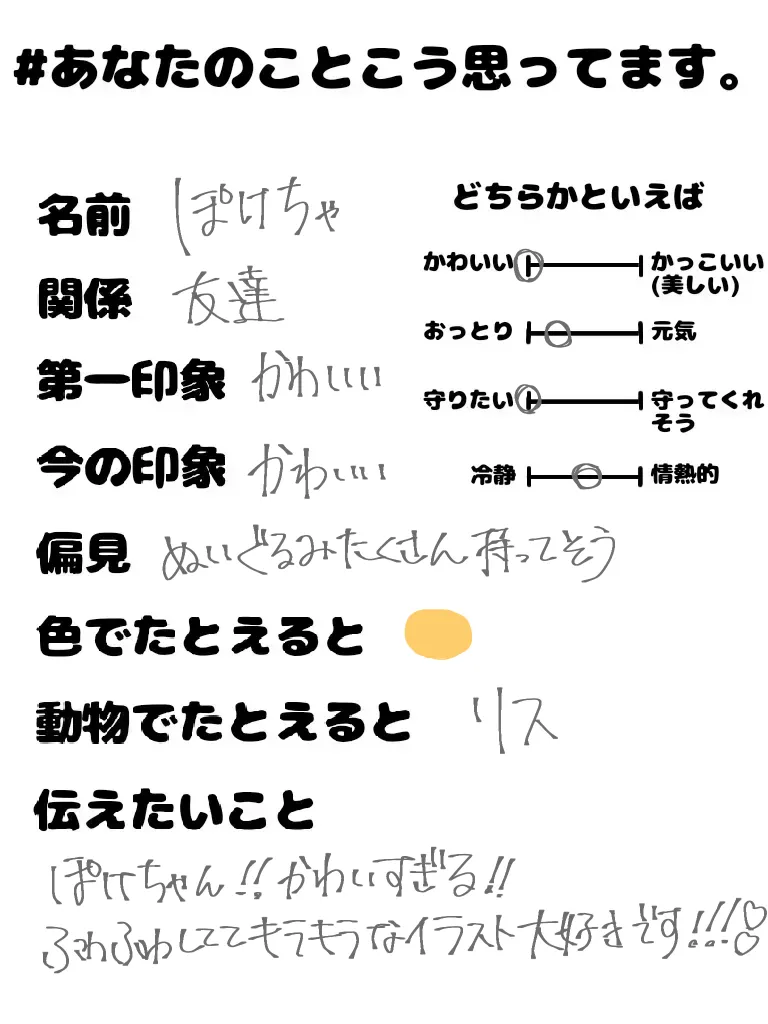 #あなたのことこう思ってます。
名前 ぽけちゃ
関係 友達
第一印象 かわいい
今の印象 かわいい
どちらかといえば
かわいい かっこいい
(美しい)
おっとり 元気
守りたい 守ってくれ
そう
冷静 情熱的
偏見 ぬいぐるみたくさん持ってそう
色でたとえると
動物でたとえると リス
伝えたいこと
ぽけちゃん!!かわいすぎる!!
ふわふわしててキラキラなイラスト大好きです!!!♡♡